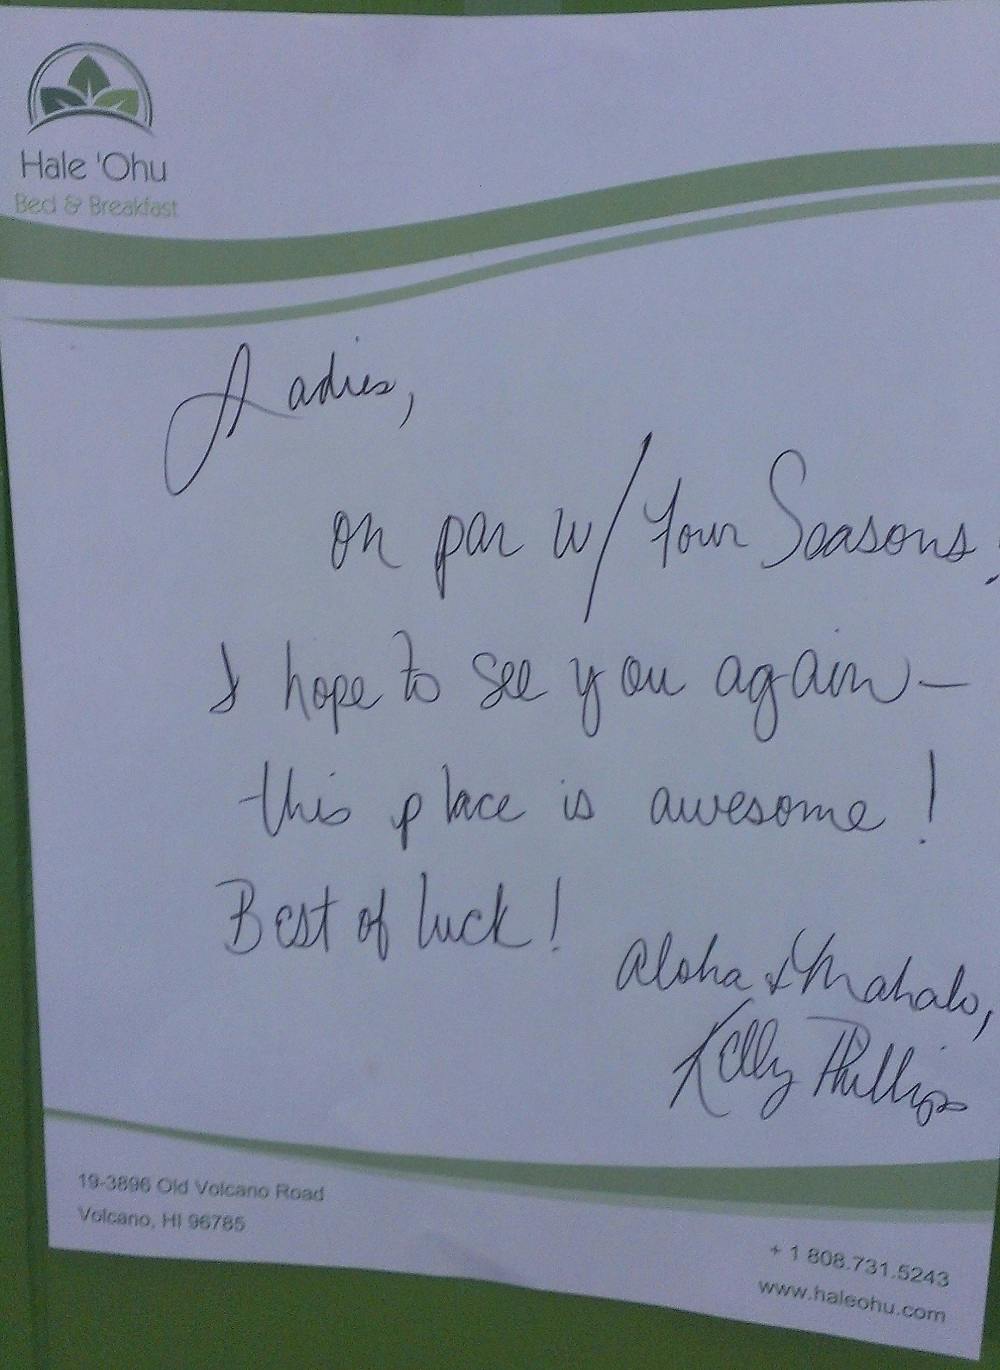 Hale 'Ohu
Bed & Breakfast
Ladies,
on par w/ Four Seasons!
I hope to see you again —
this place is awesome!
Best of luck!
Aloha & Mahalo,
Kelly Phillips
19-3896 Old Volcano Road
Volcano, HI 96785
+ 1 808.731.5243
www.haleohu.com